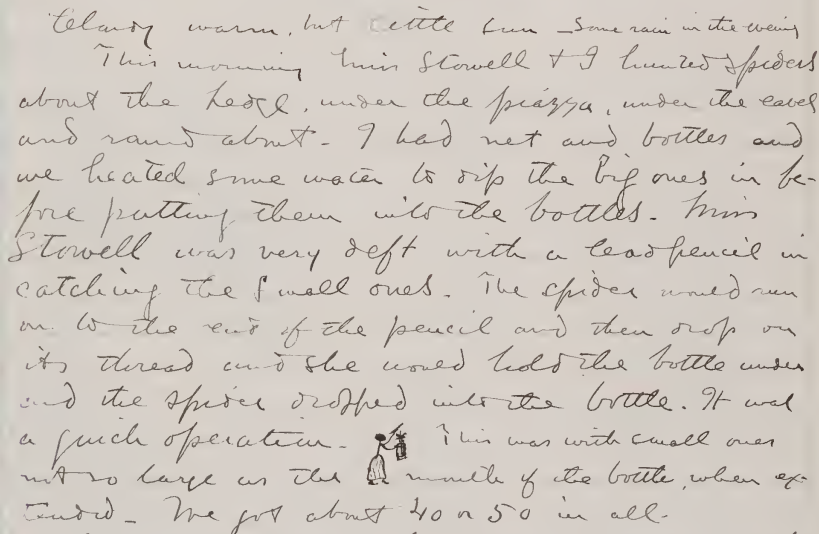 warm, but little sun - Some rain in the evening
This morning Miss Stowell & I hunted spiders
about the hedge, under the piazza, under the eaves
and round about - I had net and bottles and
we heated some water to dip the big ones in be-
fore putting them into the bottles. Miss
Stowell was very deft with a lead pencil in
catching the small ones. The spider would run
on to the end of the pencil and then drop on
its thread and she would hold the bottle under
and the spider dropped into the bottle. It was
a quick operation. This was with small ones
not so large as the mouth of the bottle, when ex-
tended - We got about 40 or 50 in all.